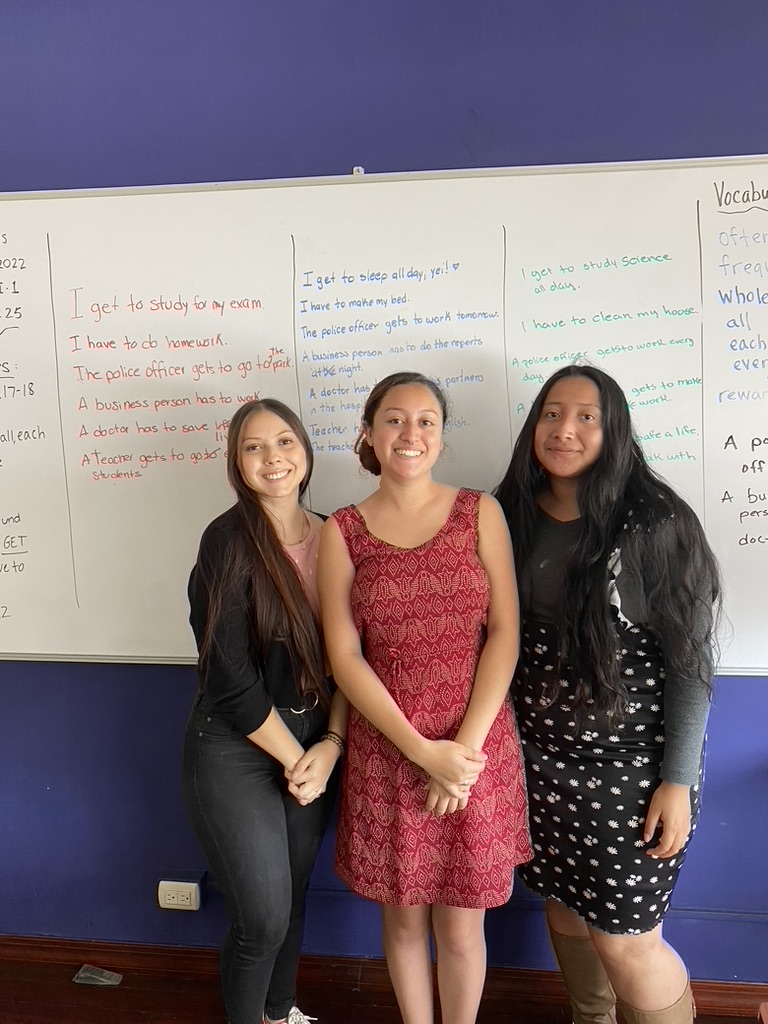 2022
I.1
25
17-18
all, each
GET
I get to study for my exam.
I have to do homework.
The police officer gets to go to the park.
A business person has to work
A doctor has to save
A Teacher gets to go to
students
I get to sleep all day, yei! ♡
I have to make my bed.
The police officer gets to work tomorrow.
A business person has to do the reports
at night.
A doctor has partners
in the
Teacher
The
I get to study science
all day.
I have to clean my house.
A police officer gets to work every
day
gets to make
work.
safe a life.
with
Vocabu
often
frequ
Whole
all
each
ever
rewar
A po
off
A bu
pers
doc